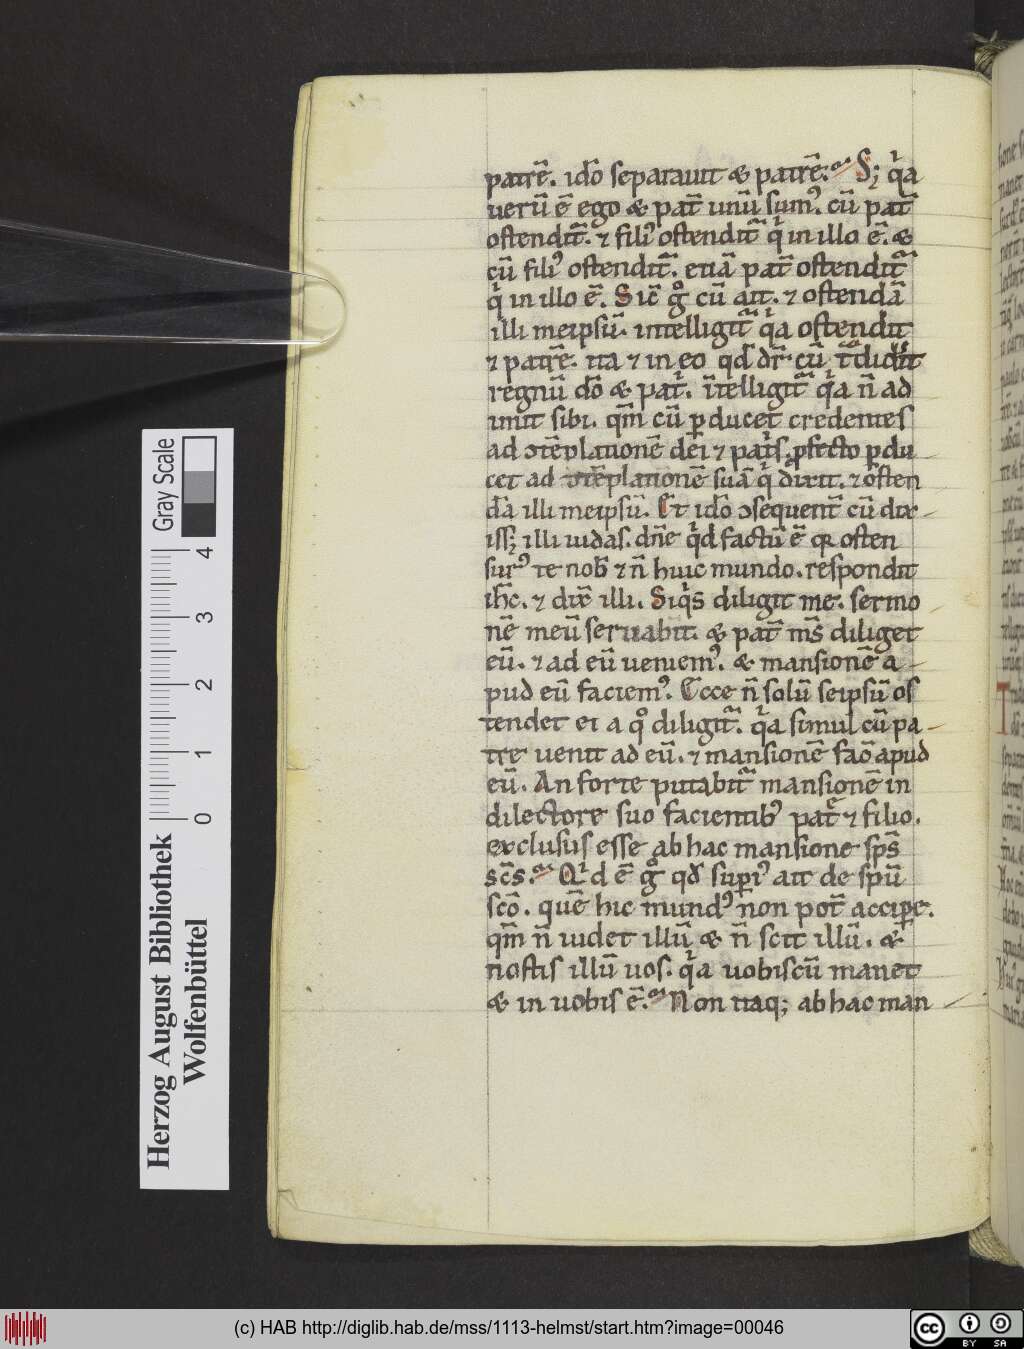 patrē. idō separauit & patrē. S; qͥa
uerū ē ego & pat̄ unū sumꝰ. cū pat̄
ostendit̄. ⁊ filiꝰ ostendit̄ qͥ in illo ē. &
cū filiꝰ ostendit̄. etiā pat̄ ostendit̄
qͥ in illo ē. Sic̄ gͦ cū ait. ⁊ ostendā
illi meipsū. intelligit̄ qͥa ostendit
⁊ patrē. ita ⁊ in eo qd̄ dr̄ cū t̄didit
regnū dō & pat̄. īelligit̄ qͥa n̄ ad
imit sibi. qm̄ cū ꝑducet credentes
ad ꝯtēplationē dei ⁊ pat̄s. ꝓfecto ꝑdu
cet ad ꝯtēplationē suā qͥ dixit. ⁊ osten
dā illi meipsū. Et idō ꝯsequent̄ cū dix
iss; illi iudas. dn̄e qͥd factū ē qꝛ osten
surꝰ te nob̄ ⁊ n̄ huic mundo. respondit
ih̄c. ⁊ dix̄ illi. Siqͥs diligit me. sermo
nē meū seruabit. & pat̄ ms̄ diliget
eū. ⁊ ad eū ueniemꝰ. & mansionē a
pud eū faciemꝰ. Ecce n̄ solū seipsū os
tendet ei a qͦ diligit̄. qͥa simul cū pa
tre uenit ad eū. ⁊ mansionē faō apud
eū. An forte putabit̄ mansionē in
dilectore suo facientibꝰ pat̄ ⁊ filio.
exclusus esse ab hac mansione sps̄
sc̄s. Qͥd ē gͦ qd̄ supiꝰ ait de spū
scō. quē hic mundꝰ non pot̄ accipe.
qm̄ n̄ uidet illū & n̄ scit illū. &
nostis illū uos. qͥa uobiscū manet
& in uobis ē. Non itaq; ab hac man
Gray Scale
4
3
2
1
0
Herzog August Bibliothek
Wolfenbüttel
(c) HAB http://diglib.hab.de/mss/1113-helmst/start.htm?image=00046
cc BY SA